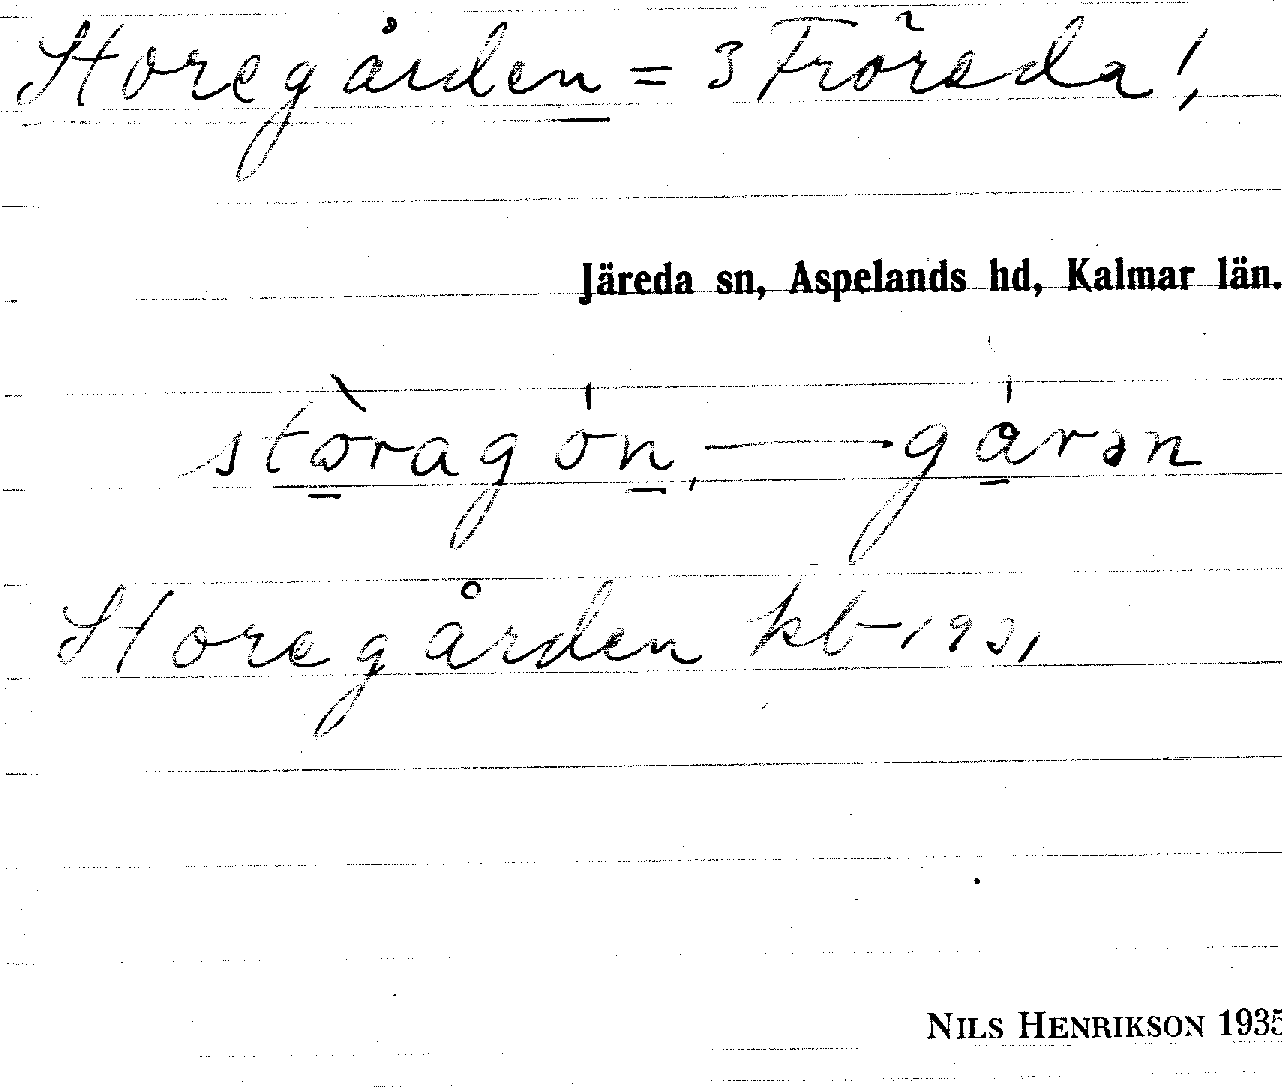 Storegården = 3 Fröreda!
Järeda sn, Aspelands hd, Kalmar län.
stòragón, — gǻrən
Storegården kb 1931
NILS HENRIKSON 1935